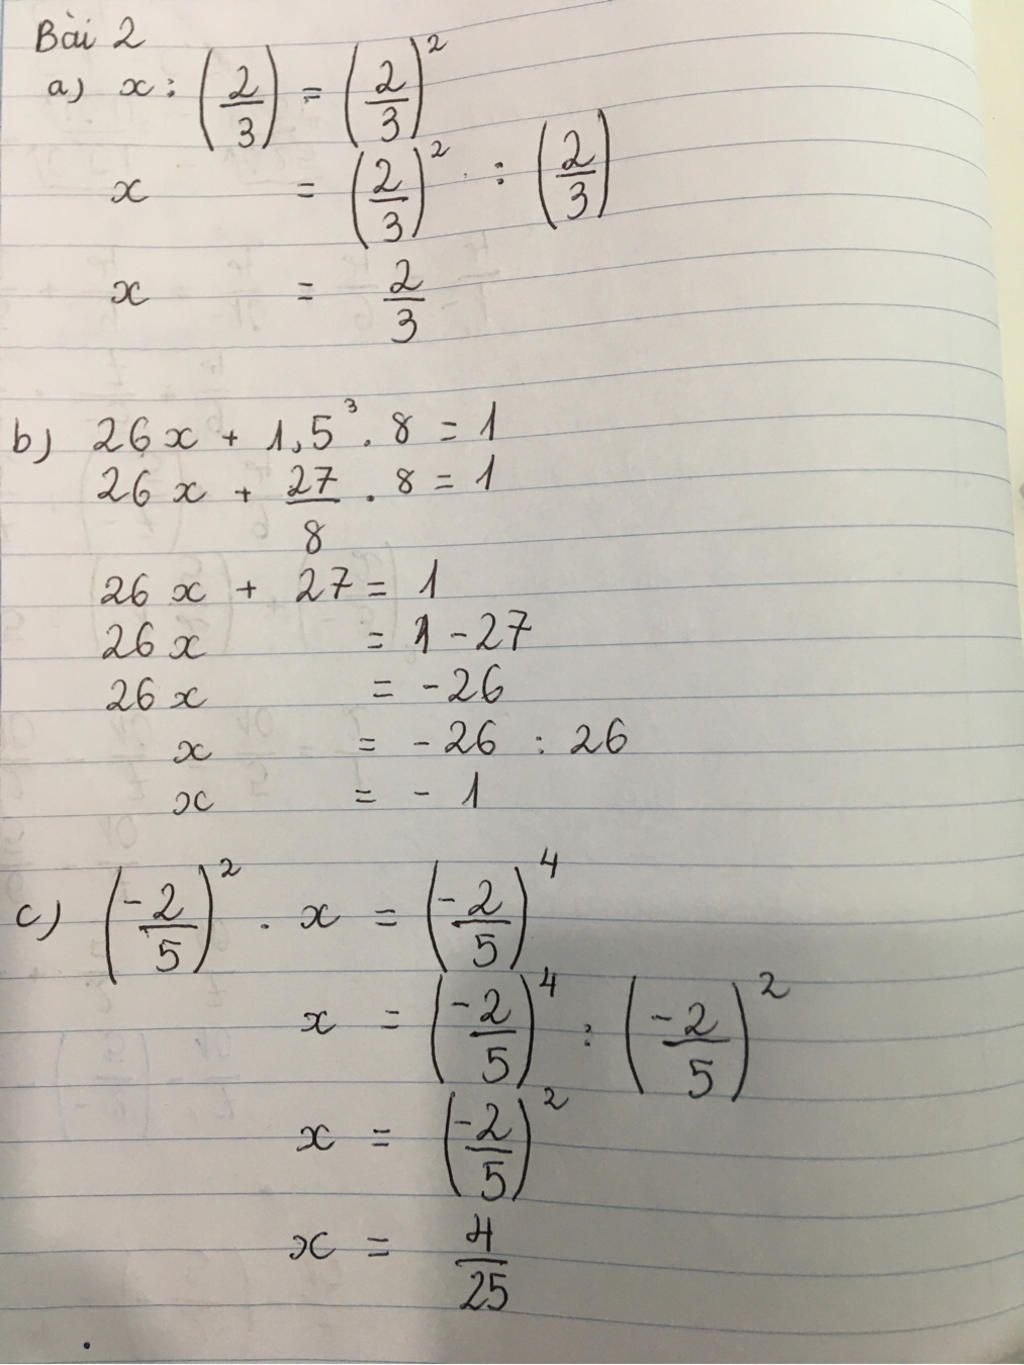 Bài 2
a) x : (2/3) = (2/3)²
x = (2/3)² : (2/3)
x = 2/3
b) 26x + 1,5³ . 8 = 1
26x + 27/8 . 8 = 1
26x + 27 = 1
26x = 1 - 27
26x = -26
x = -26 : 26
x = -1
c) (-2/5)² . x = (-2/5)⁴
x = (-2/5)⁴ : (-2/5)²
x = (-2/5)²
x = 4/25